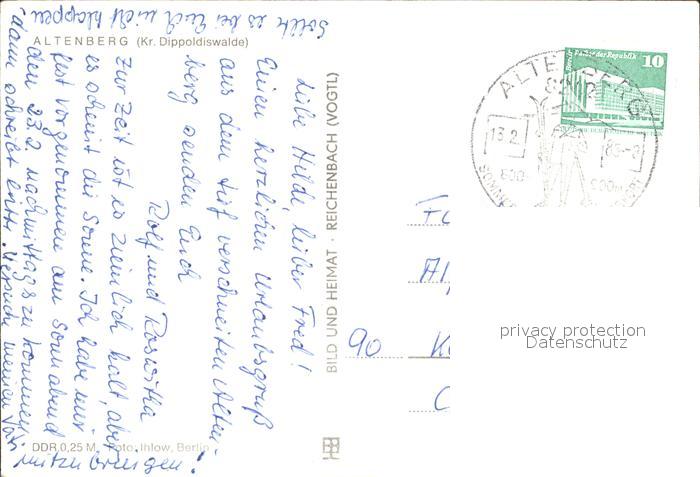 ALTENBERG (Kr. Dippoldiswalde)
Liebe Hilde, lieber Fred!
Einen herzlichen Urlaubsgruß
aus dem tief verschneiten Alten-
berg senden Euch
Rolf und Roswitha
Zur Zeit ist es ziemlich kalt, aber
es scheint die Sonne. Ich habe mir
fest vorgenommen am Sonnabend
den 23.2. nachmittags zu kommen,
mitzubringen!
Sollte es bei Euch nicht klappen
dann schreibt bitte. Versuch meinen Vati
DDR 0,25 M Foto: Ihlow, Berlin
BILD UND HEIMAT · REICHENBACH (VOGTL)
ALTENBERG
8242
13.2. 85-8
800-
900m
SOMMER
Berlin, Palast der Republik
10
90
privacy protection
Datenschutz